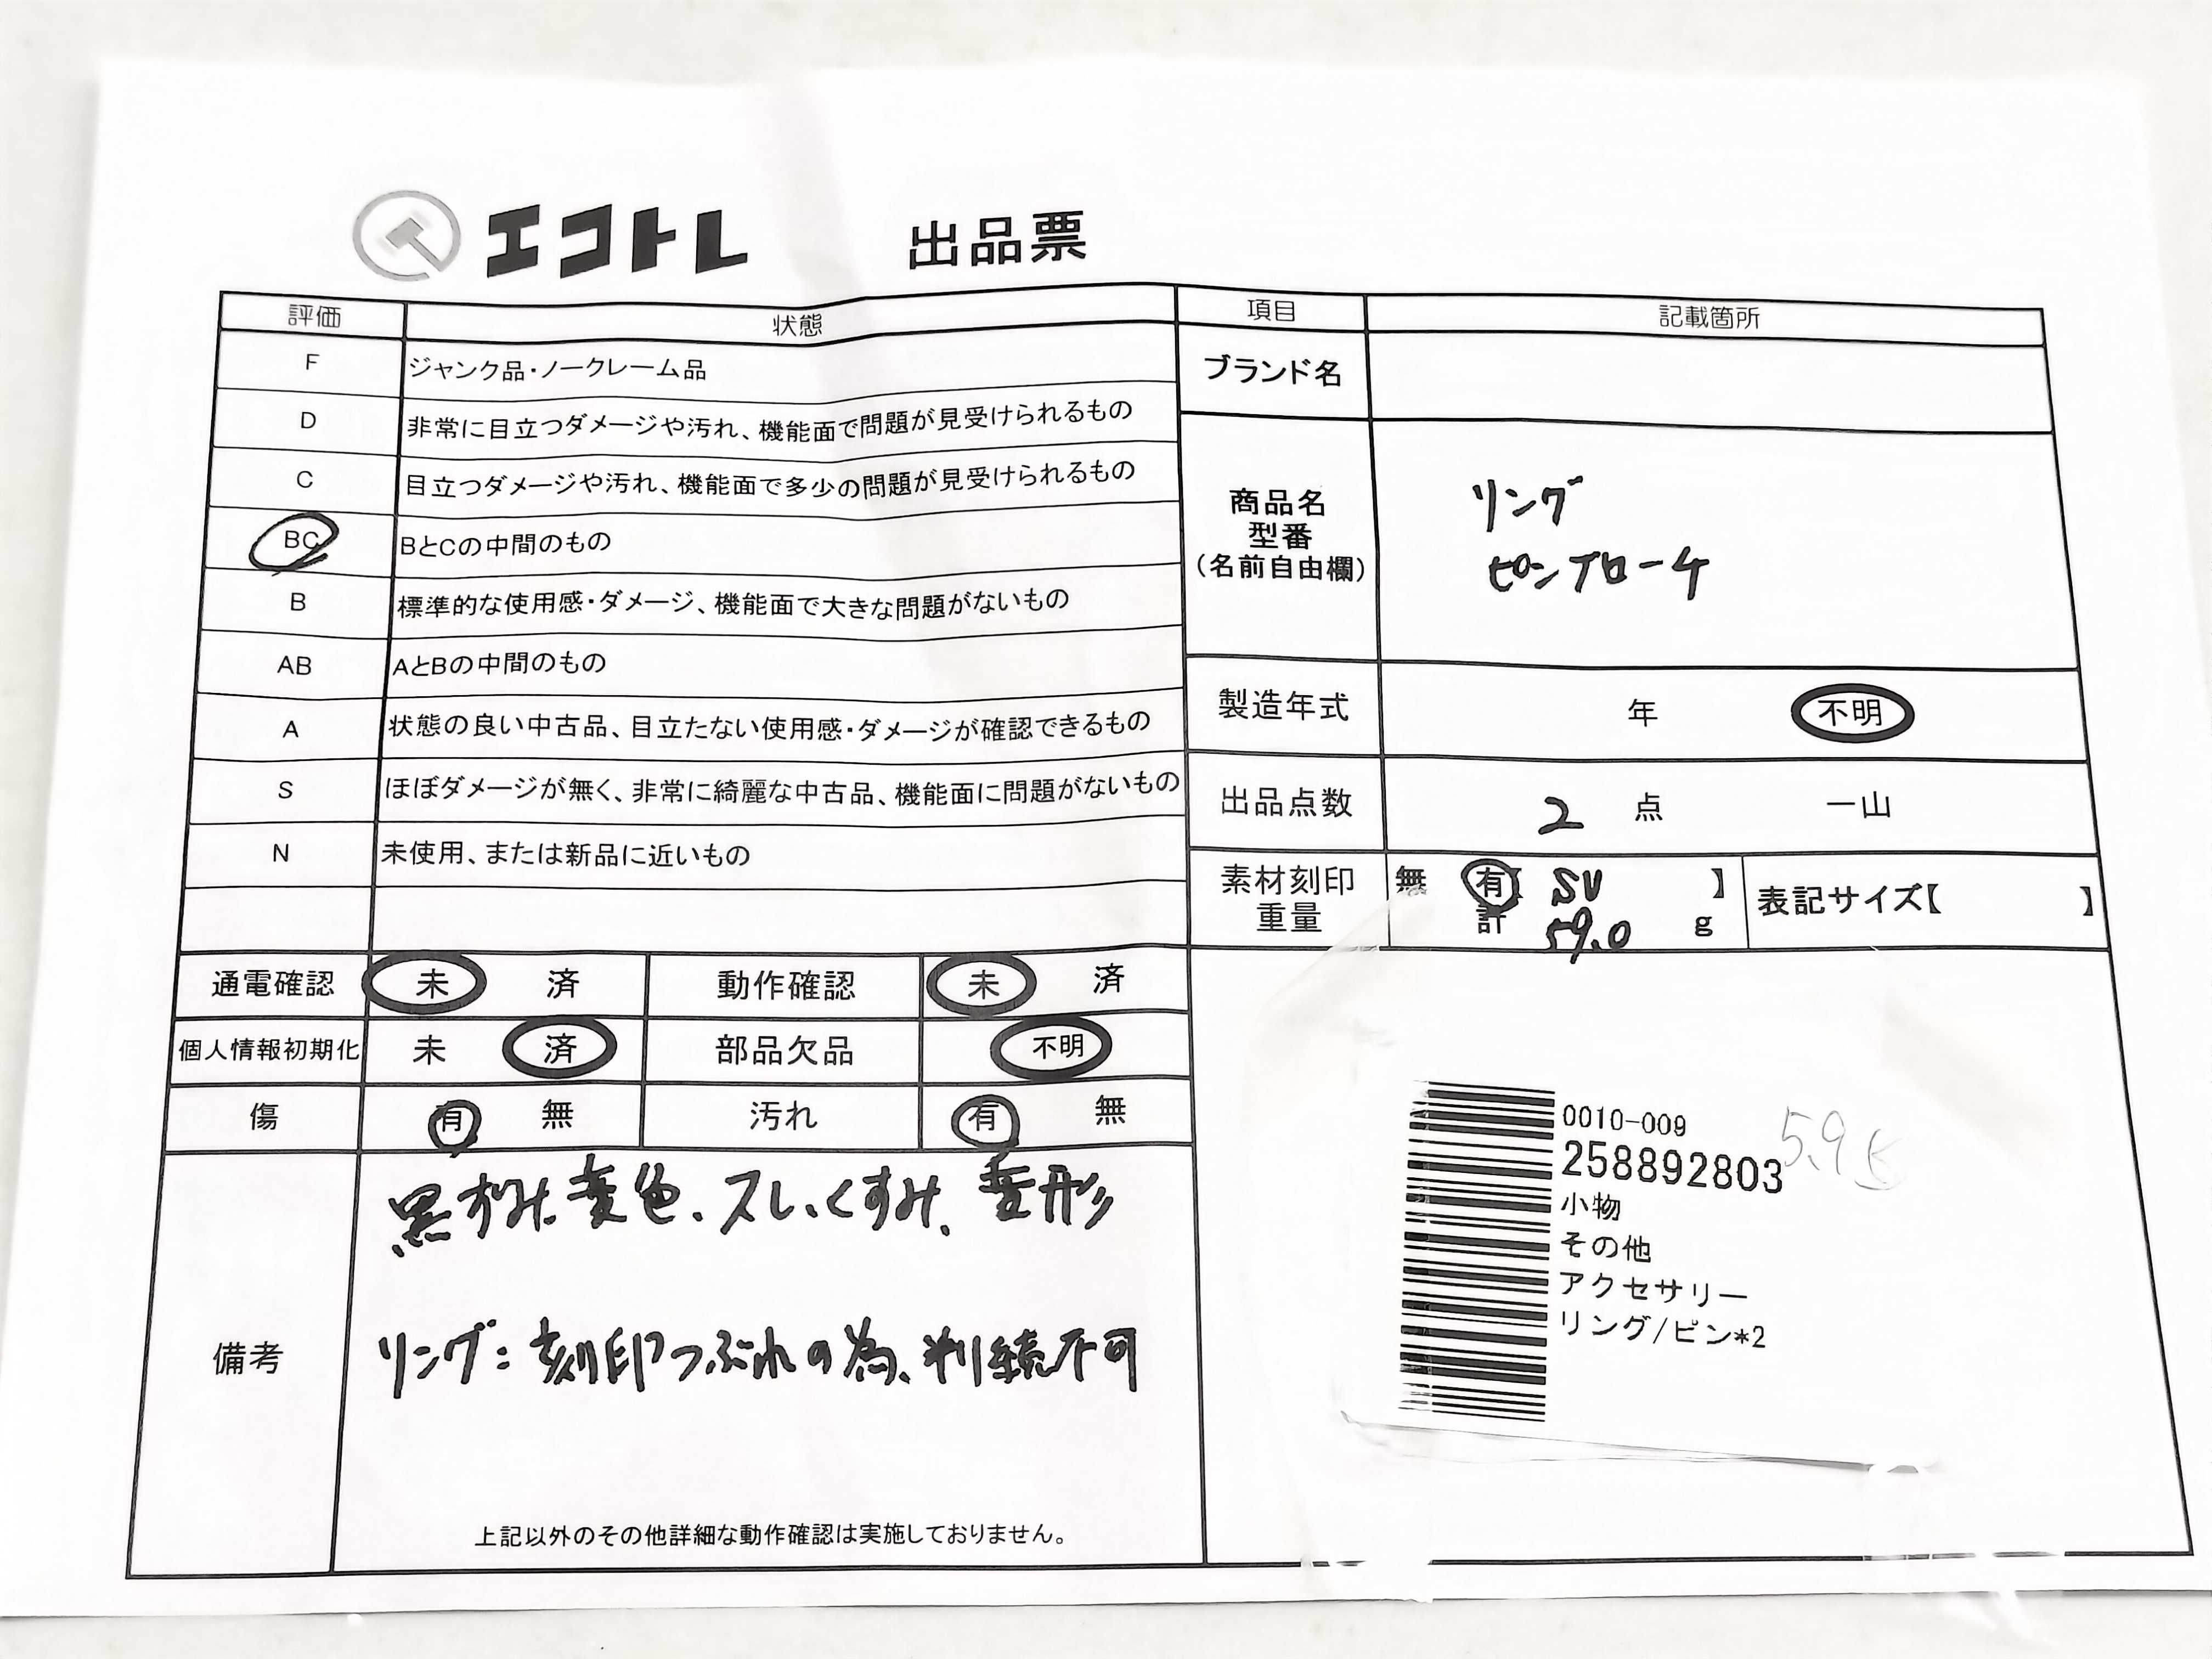 エコトレ 出品票
評価 状態 項目 記載箇所
F ジャンク品・ノークレーム品
D 非常に目立つダメージや汚れ、機能面で問題が見受けられるもの
C 目立つダメージや汚れ、機能面で多少の問題が見受けられるもの
BC BとCの中間のもの
B 標準的な使用感・ダメージ、機能面で大きな問題がないもの
AB AとBの中間のもの
A 状態の良い中古品、目立たない使用感・ダメージが確認できるもの
S ほぼダメージが無く、非常に綺麗な中古品、機能面に問題がないもの
N 未使用、または新品に近いもの
通電確認 未 済 動作確認 未 済
個人情報初期化 未 済 部品欠品 不明
傷 有 無 汚れ 有 無
備考
黒ずみ、変色、スレ、くすみ、変形
リング:刻印つぶれの為、判続不可
上記以外のその他詳細な動作確認は実施しておりません。
ブランド名
商品名
型番
(名前自由欄)
リング
ピンブローチ
製造年式 年 不明
出品点数 2 点 一山
素材刻印 無 有【 SV 】 表記サイズ【 】
重量 計 59.0 g
0010-009
258892803
小物
その他
アクセサリー
リング/ピン*2